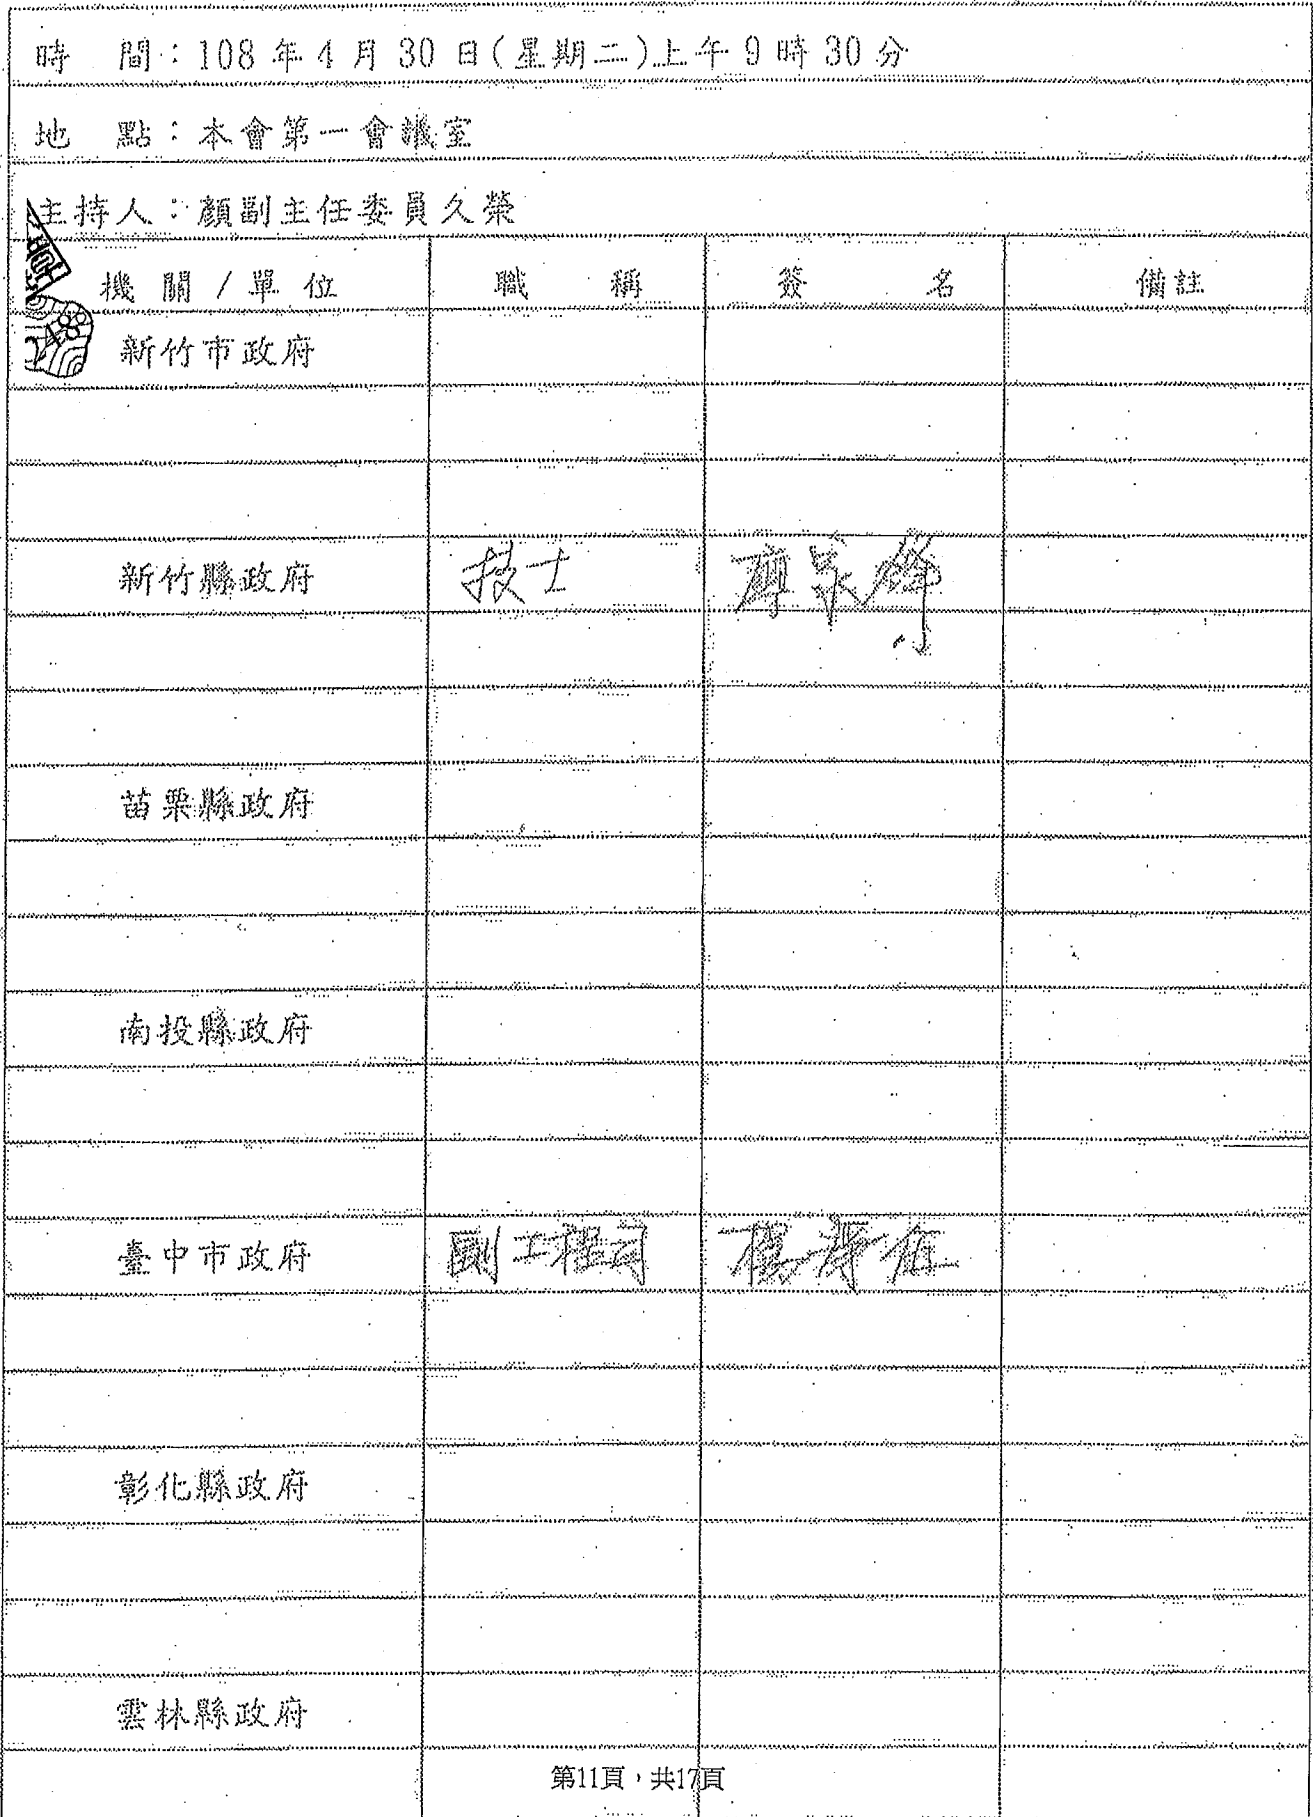 時　間：108年4月30日(星期二)上午9時30分
地　點：本會第一會議室
主持人：顏副主任委員久榮
機關/單位　職　稱　簽　名　備註
新竹市政府
新竹縣政府　技士　廖
苗栗縣政府
南投縣政府
臺中市政府　副工程司　楊
彰化縣政府
雲林縣政府
第11頁，共17頁